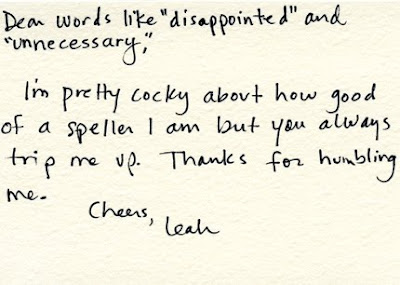 Dear words like "disappointed" and
"unnecessary,"
I'm pretty cocky about how good
of a speller I am but you always
trip me up. Thanks for humbling
me.
Cheers,
Leah